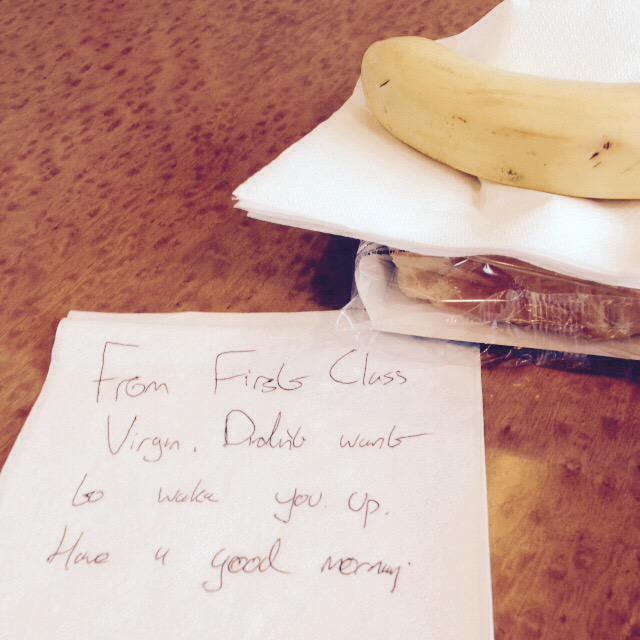 From First Class
Virgin. Didnt want
to wake you up.
Have a good morning.